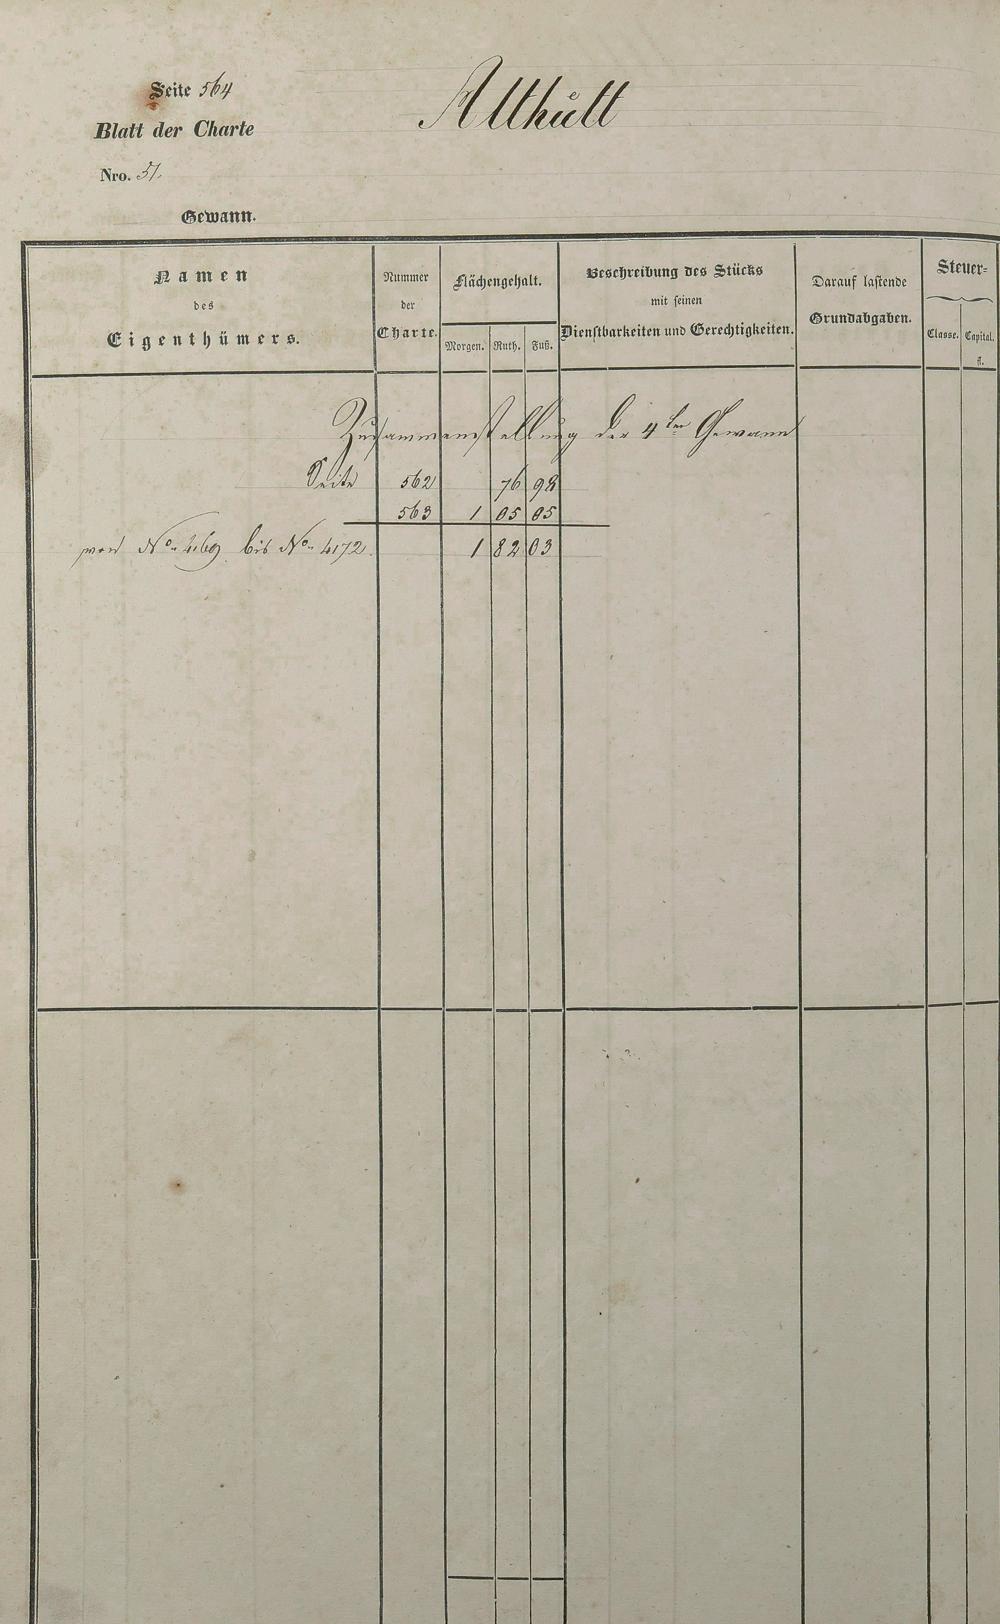 Seite 564
Althütt
Blatt der Charte
Nro. 51.
Gewann.
Namen des Eigenthümers.
Nummer der Charte.
Flächengehalt.
Morgen. Ruth. Fuß.
Beschreibung des Stücks mit seinen Dienstbarkeiten und Gerechtigkeiten.
Darauf lastende Grundabgaben.
Steuer-
Classe. Capital. fl.
Zusammenstellung der 4ten Gewann
Seite 562 76 98
563 1 05 05
von No. 4169. bis No. 4172. 1 82 03